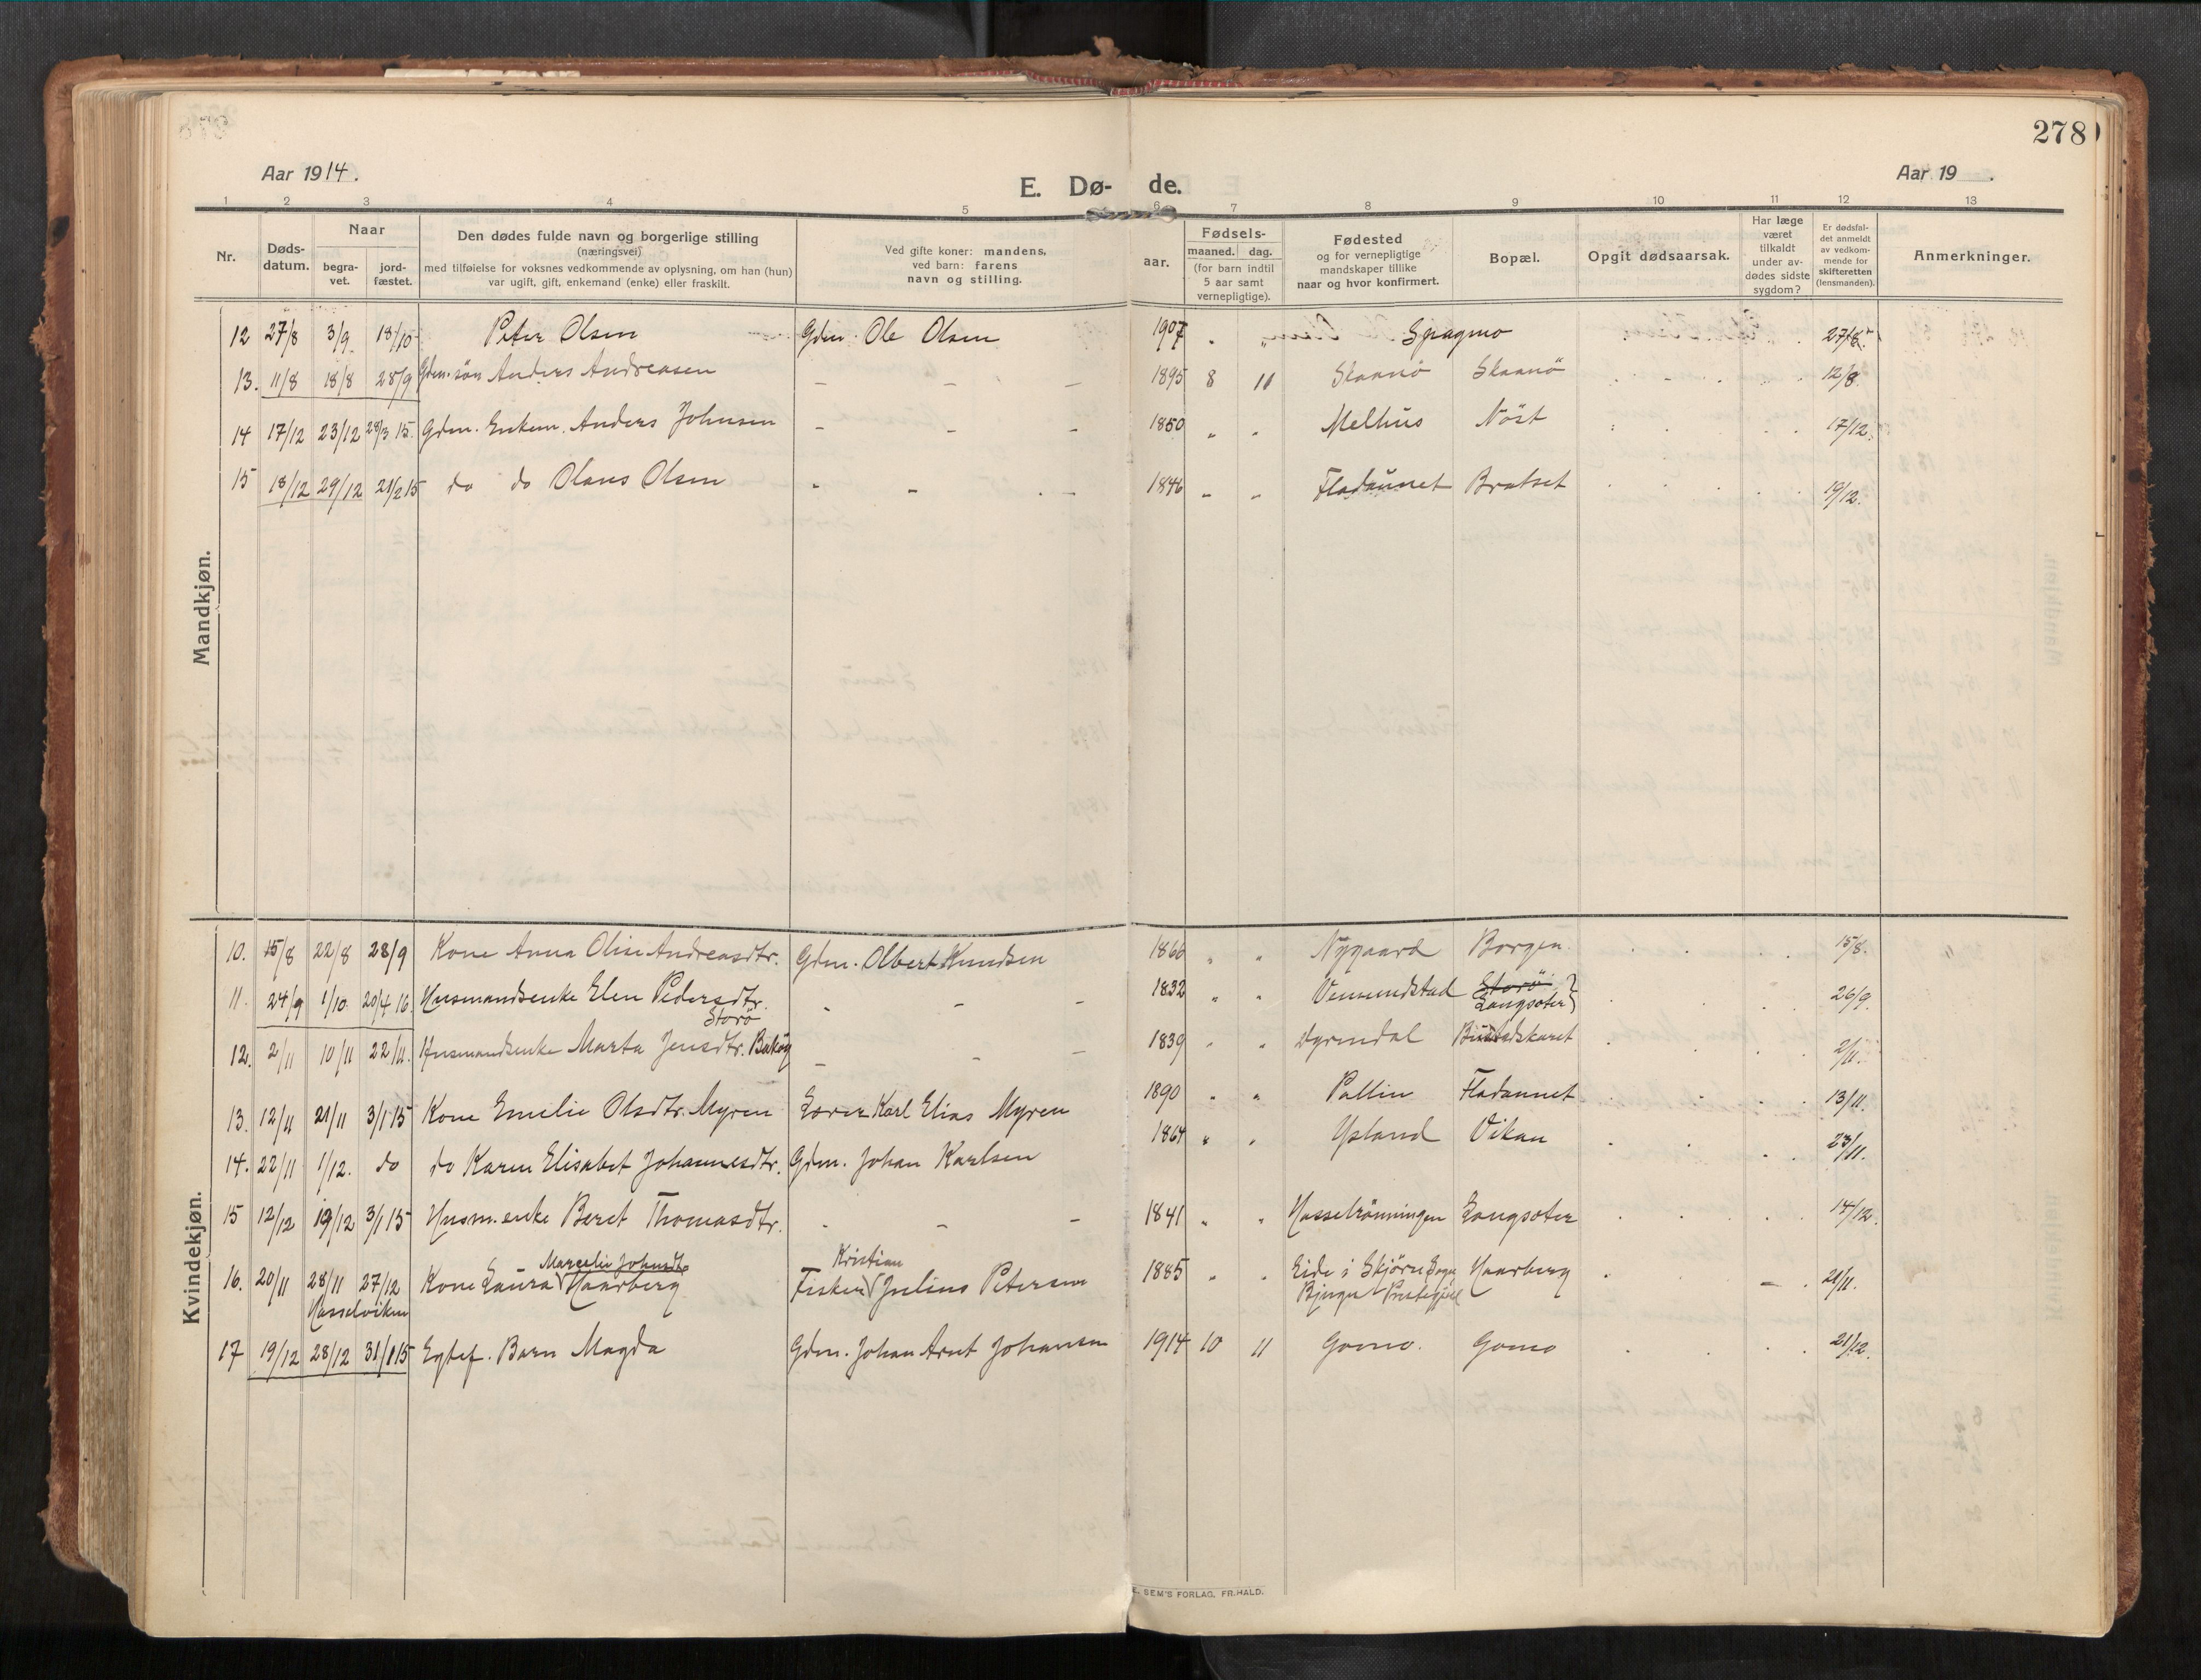 278
Aar 1914.
E. Dø- de.
Aar 19 .
1 2 3 4 5 6 7 8 9 10 11 12 13
Nr.
Døds-
datum.
Naar
begra-
vet.
jord-
fæstet.
Den dødes fulde navn og borgerlige stilling
(næringsvei)
med tilføielse for voksnes vedkommende av oplysning, om han (hun)
var ugift, gift, enkemand (enke) eller fraskilt.
Ved gifte koner: mandens,
ved barn: farens
navn og stilling.
aar.
Fødsels-
maaned. dag.
(for barn indtil
5 aar samt
vernepligtige).
Fødested
og for vernepligtige
mandskaper tillike
naar og hvor konfirmert.
Bopæl.
Opgit dødsaarsak.
Har læge
været
tilkaldt
under av-
dødes sidste
sygdom?
Er dødsfal-
det anmeldt
av vedkom-
mende for
skifteretten
(lensmanden).
Anmerkninger.
Mandkjøn.
12 27/8 3/9 18/10 Peter Olsen Gdm. Ole Olsen 1907 " " Spagmo 27/8.
13. 11/8 18/8 28/9 Gdm. søn Anders Andreasen – – – 1895 8 11 Skaanö Skaanö 12/8.
14 17/12 23/12 28/3 15. Gdm. Enkem. Anders Johnsen – – – 1850 " " Melhus Nöst 17/12.
15 18/12 29/12 21/2 15 do do Olaus Olsen – – – 1846 " " Fladaunet Bratset 19/12.
Kvindekjøn.
10. 15/8 22/8 28/9 Kone Anna Oline Andreasdtr. Gdm. Olbert Knudsen 1866 " " Nygaard Borgen. 15/8.
11. 24/9 1/10 20/4 16. Husmandsenke Elen Pedersdtr. – – – 1832 " " Vensundstad Storö
Langsæter 26/9.
Storö
12. 2/11 10/11 22/11. Husmandsenke Marta Jensdtr. Bakög – – – 1839 " " Dyrendal 2/11.
13. 12/11 21/11 3/1 15 Kone Emelie Olsdtr. Myren Lærer Karl Elias Myren 1890 " " Pallin Fladaunet 13/11.
14. 22/11 1/12. do do Karen Elisabet Johannesdtr. Gdm. Johan Karlsen 1864 " " Ysland Vikan 23/11.
15 12/12 19/12 3/1 15 Husm. enke Beret Thomasdtr. – – – 1841 " " Hasselrönningen Langsæter 14/12.
Marcelie Johnsdtr. Kristian
16. 20/11 28/11 27/12 Kone Laura Haarberg Fisker Julius Petersen 1885 " " Eide i Skjörn Sogn Haarberg – 21/11.
Hasselviken Bjugn Prestegjeld
17 19/12 28/12 31/1 15 Egtef. Barn Magda Gdm. Johan Arnt Johansen 1914 10 11 Gomo. Gomo 21/12.
E. SEM'S FORLAG, FR.HALD.